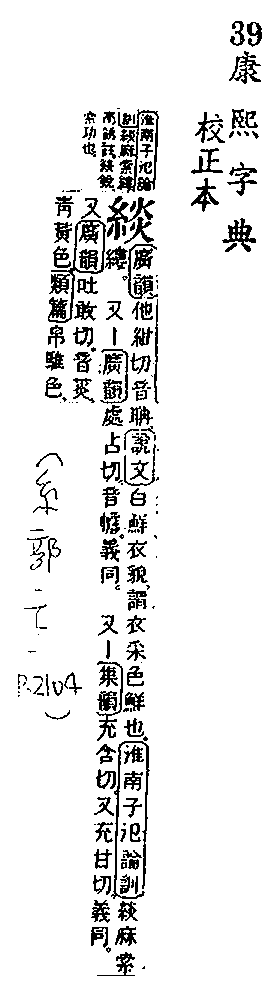 39
康熙字典
校正本
緂
廣韻他紺切音聃說文白鮮衣貌謂衣采色鮮也淮南子氾論訓緂麻索
縷 又廣韻處占切音幨義同 又集韻充含切又充甘切義同
又廣韻吐敢切音菼
青黃色類篇帛騅色
淮南子氾論
訓緂麻索縷
高誘註緂銳
索功也
(糸部
P.2104
)